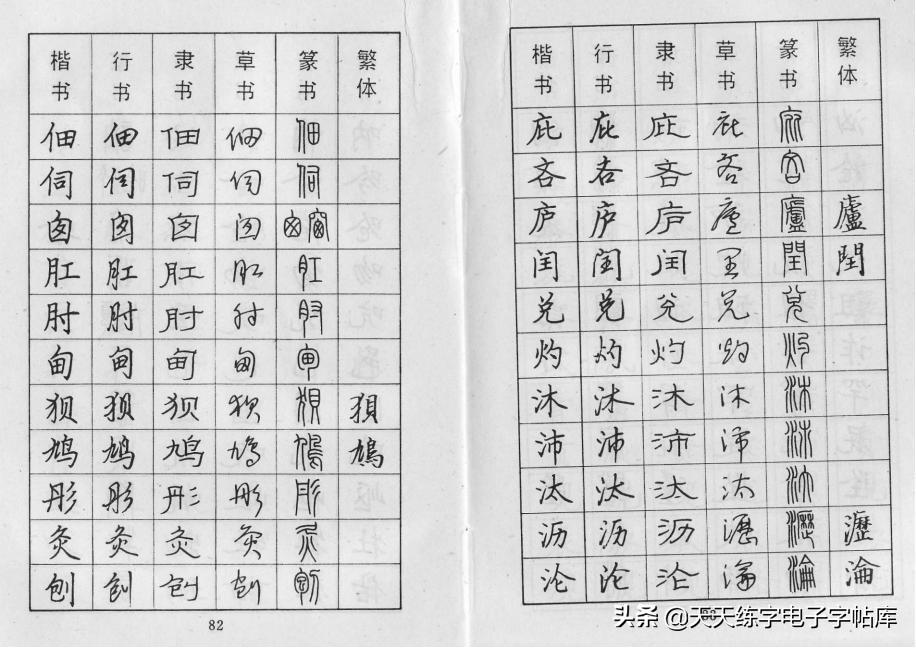 楷书 行书 隶书 草书 篆书 繁体
佃 佃 佃 佃 佃
伺 伺 伺 伺 伺
囱 囱 囱 囱 囱窗
肛 肛 肛 肛 肛
肘 肘 肘 肘 肘
甸 甸 甸 甸 甸
狈 狈 狈 狈 狽 狽
鸠 鸠 鸠 鸠 鳩 鳩
彤 彤 彤 彤 彤
灸 灸 灸 灸 灸
刨 刨 刨 刨 刨
82
楷书 行书 隶书 草书 篆书 繁体
庇 庇 庇 庇 庇
吝 吝 吝 吝 吝
庐 庐 庐 廬 廬 廬
闰 闰 闰 闰 閏 閏
兑 兑 兑 兑 兑
灼 灼 灼 灼 灼
沐 沐 沐 沐 沐
沛 沛 沛 沛 沛
汰 汰 汰 汰 汰
沥 沥 沥 瀝 瀝 瀝
沦 沦 沦 淪 淪 淪
头条 @天天练字电子字帖库